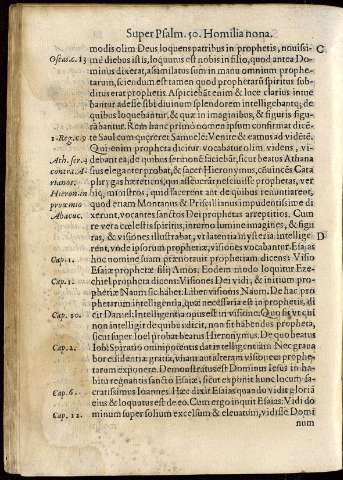 Super Psalm. 50. Homilia nona.
modis olim Deus loquens patribus in prophetis, nouissi- C
Oseæ. c. 13 mè diebus istis, loquutus est nobis in filio, quod antea Do-
minus dixerat, assimilatus sum in manu omnium prophe-
tarum, sciendum est tamen quod prophetarũ spiritus sub-
diti erāt prophetis Aspiciebāt enim & luce clarius intue
bantur adesse sibi diuinum splendorem intelligebantq; de
quibus loquebantur, & quæ in imaginibus, & figuris figu-
rabantur. Rem hanc primo nomen ipsum confirmat dicē-
1. Reg. c. 9 te Saul cum quæreret Samuelē: Venite & eamus ad vidētē.
Qui enim propheta dicitur vocabatur olim videns, vi-
Ath. ser. 4 debant ea, de quibus sermonē faciebāt, sicut beatus Athana
contra A- sius eleganter probat, & sacer Hieronymus, cōuincēs Cata
rianos. phrygas hæreticos, qui asseuerāt nesciuisse prophetas, ver
Hieron. in bis, aut literis, quid sacerent aut de quibus renuntiarent,
proœmio quod etiam Montanus & Priscillinus impudentissimè di
Abacuc. xerunt, vocantes sanctos Dei prophetas arreptitios. Cum
re vera cœlestis spiritus, interno lumine imagines, & figu
ras, & visiones illustrabat, vt latentia mysteria intellige D
rent, vnde ipsorum prophetiæ, visiones vocabantur. Esaias
Cap. 1. hoc nomine suam prænotauit prophetiam dicens: Visio
Esaiæ prophetæ filij Amos. Eodem modo loquitur Eze-
Cap. 11. chiel propheta dicens: Visiones Dei vidi, & initium pro-
phetiæ Naum sic habet. Liber visionis Naum. De hac pro
phetarum intelligentia, quæ necessaria est in prophetis, di
Cap. 10. cit Daniel: Intelligentia opus est in visione. Quo fit vt qui
non intelligit de quibus dicit, non sit habendus propheta,
sicut super Ioel probat beatus Hieronymus. De quo beatus
Cap. 2. Iob: Spiratio omnipotentis dat intelligentiam Nec graua
bor eiusdem ea gratia, vnam aut alteram visionem prophe-
tarum exponere. Demonstratus est Dominus Iesus in ha-
bitu regnantis sancto Esaiæ, sicut exponit hunc locum sa-
Cap. 6. cratissimus Ioannes. Hæc dixit Esaias quando vidit gloriā
eius & loquutus est de eo. Cum ergo inquit Esaias: Vidi do
Cap. 12. minum super solium excelsum & eleuatum, vidisse Domi
num